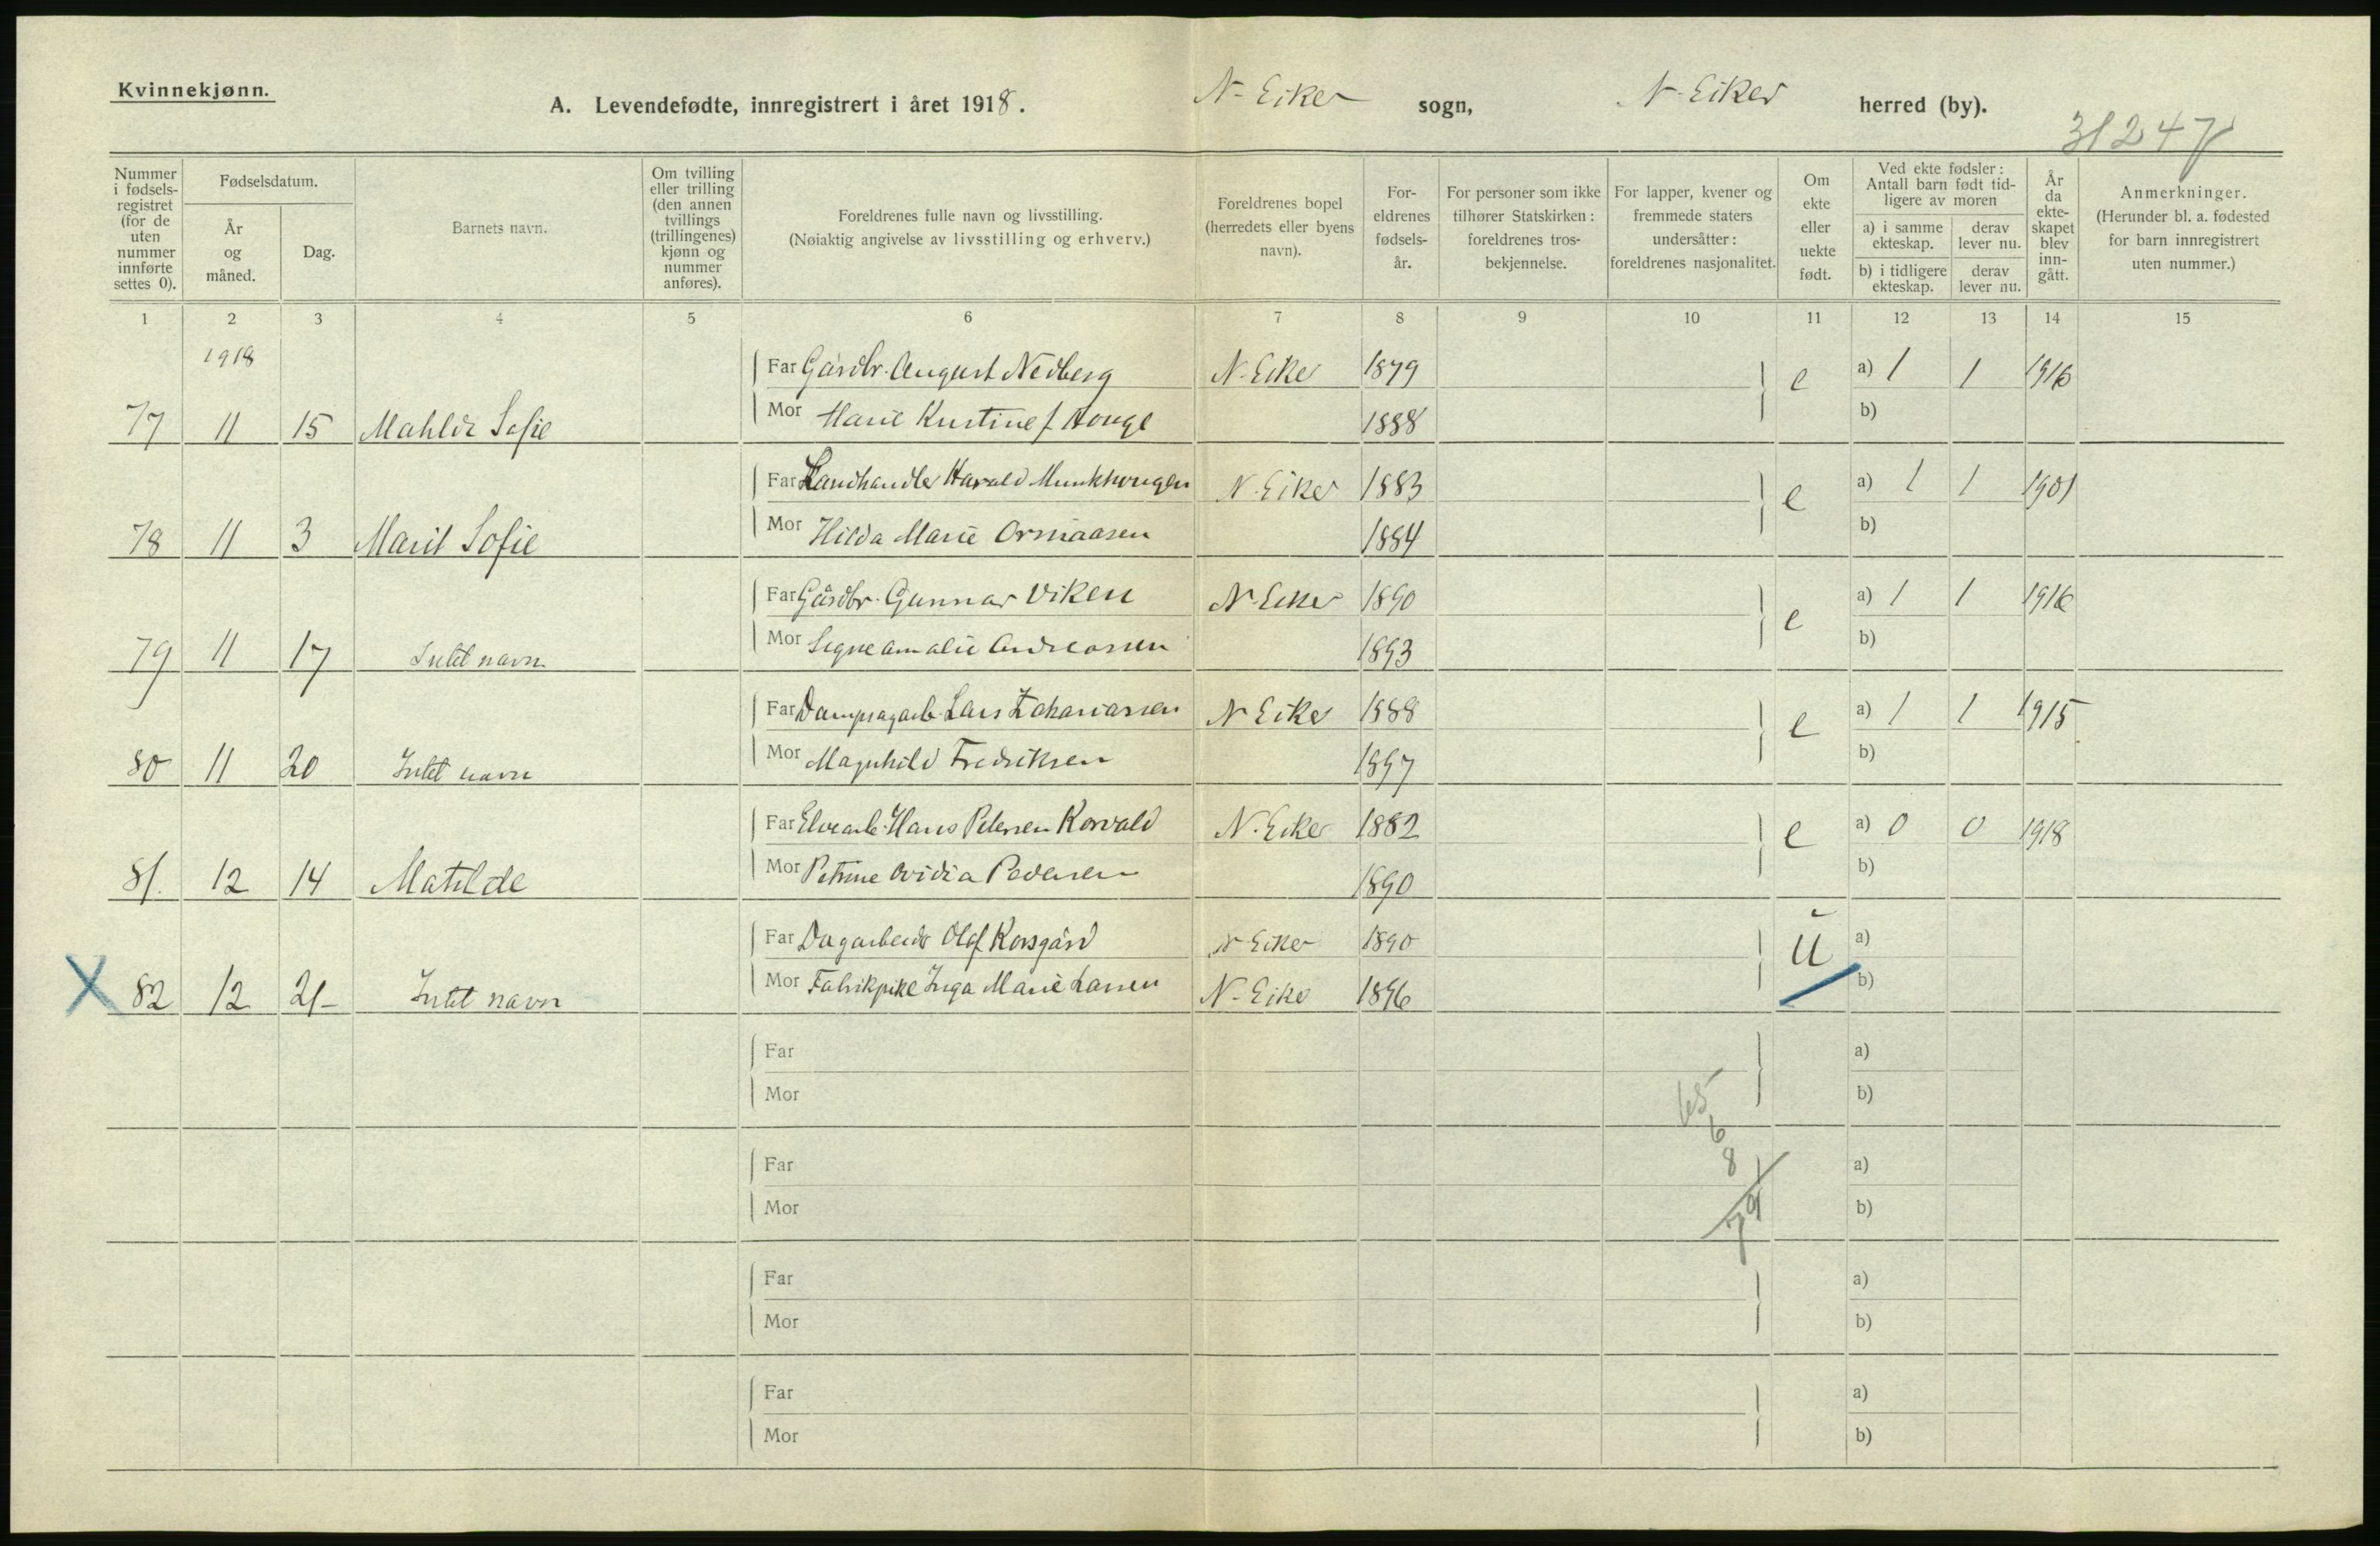 Kvinnekjønn.
A. Levendefødte, innregistrert i året 1918. N-Eiker sogn, N-Eiker herred (by).
31247
Nummer i fødsels-registret (for de uten nummer innførte settes 0).
Fødselsdatum.
År og måned.
Dag.
Barnets navn.
Om tvilling eller trilling (den annen tvillings (trillingenes) kjønn og nummer anføres).
Foreldrenes fulle navn og livsstilling.
(Nøiaktig angivelse av livsstilling og erhverv.)
Foreldrenes bopel (herredets eller byens navn).
For-eldrenes fødsels-år.
For personer som ikke tilhører Statskirken: foreldrenes tros-bekjennelse.
For lapper, kvener og fremmede staters undersåtter: foreldrenes nasjonalitet.
Om ekte eller uekte født.
Ved ekte fødsler: Antall barn født tid-ligere av moren
a) i samme ekteskap.
derav lever nu.
b) i tidligere ekteskap.
derav lever nu.
År da ekte-skapet blev inn-gått.
Anmerkninger.
(Herunder bl. a. fødested for barn innregistrert uten nummer.)
1 2 3 4 5 6 7 8 9 10 11 12 13 14 15
1918
Far Gårdbr. August Nedberg N-Eiker 1879 e a) 1 1 1916
77 11 15 Mahlde Sofie Mor Marie Kristine f. Houge 1888 b)
Far Landhandler Harald Munkhaugen N-Eiker 1883 e a) 1 1 1901
78 11 3 Marit Sofie Mor Hilda Marie Ormaasen 1884 b)
Far Gårdbr. Gunnar Viken N-Eiker 1890 e a) 1 1 1916
79 11 17 Intet navn Mor Signe Amalie Andreassen 1893 b)
Far Dampsagarb. Lars Zakariassen N Eiker 1888 e a) 1 1 1915
80 11 20 Intet navn Mor Magnhild Fredriksen 1897 b)
Far Elvearb. Hans Petersen Korvald N-Eiker 1882 e a) 0 0 1918
81. 12 14 Matilde Mor Petrine Ovidia Pedersen 1890 b)
Far Dagarbeider Olaf Korsgård N-Eiker 1890 u a)
X 82 12 21- Intet navn Mor Fabrikpike Inga Marie Larsen N-Eiker 1896 b)
Far a)
Mor b)
65
6
Far 8 a)
Mor 79 b)
Far a)
Mor b)
Far a)
Mor b)